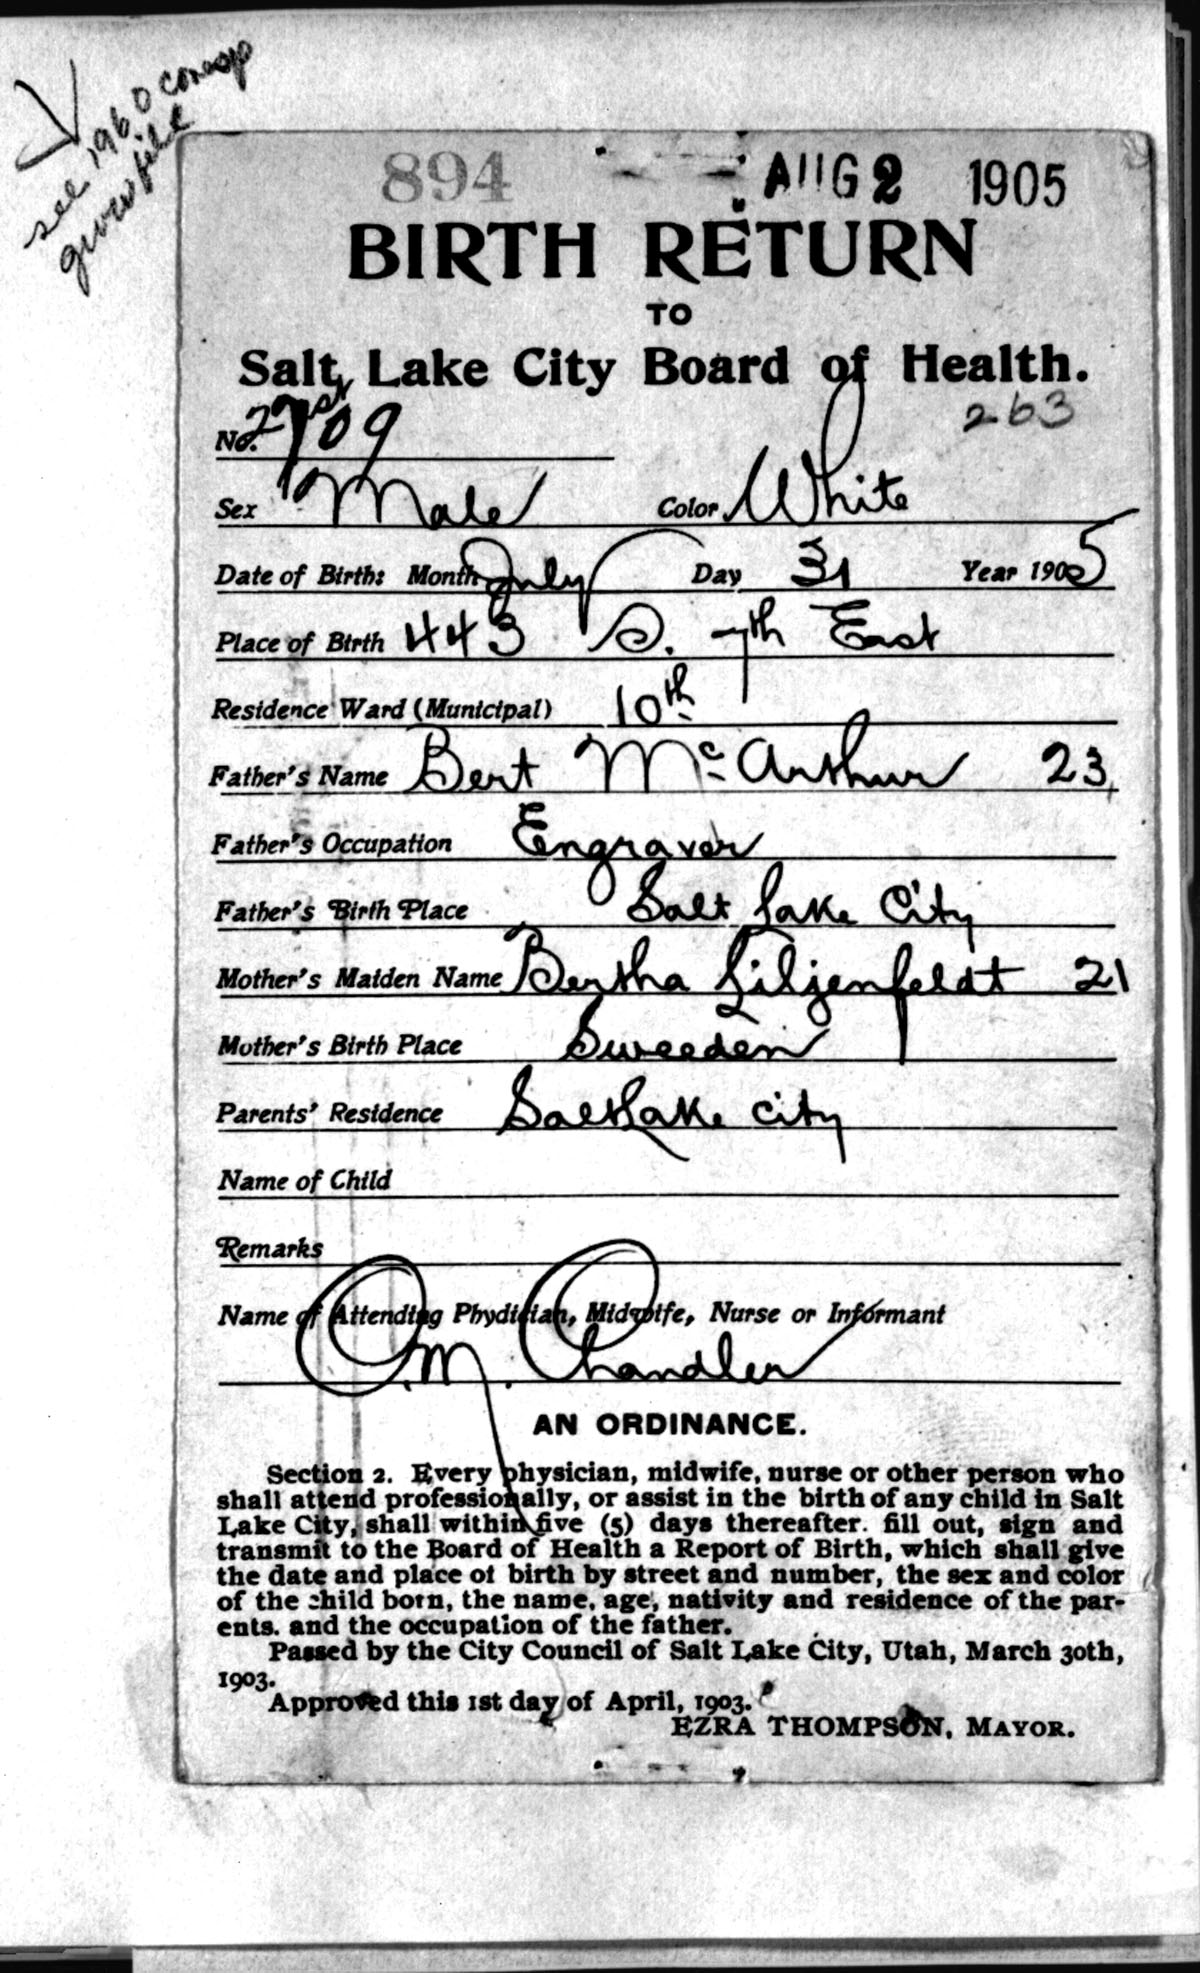 see 1960 corresp
894 AUG 2 1905
BIRTH RETURN
TO
Salt Lake City Board of Health.
263
No. 2709
1st
Sex Male Color White
Date of Birth: Month July Day 31 Year 1905
Place of Birth 443 S. 7th East
Residence Ward (Municipal) 10th
Father's Name Bert McArthur 23
Father's Occupation Engraver
Father's Birth Place Salt Lake City
Mother's Maiden Name Bertha Liljenfeldt 21
Mother's Birth Place Sweeden
Parents' Residence Salt Lake city
Name of Child
Remarks
Name of Attending Phydician, Midwife, Nurse or Informant
O. M. Chandler
AN ORDINANCE.
Section 2. Every physician, midwife, nurse or other person who
shall attend professionally, or assist in the birth of any child in Salt
Lake City, shall within five (5) days thereafter. fill out, sign and
transmit to the Board of Health a Report of Birth, which shall give
the date and place of birth by street and number, the sex and color
of the child born, the name, age, nativity and residence of the par-
ents. and the occupation of the father.
Passed by the City Council of Salt Lake City, Utah, March 30th,
1903.
Approved this 1st day of April, 1903.
EZRA THOMPSON, MAYOR.